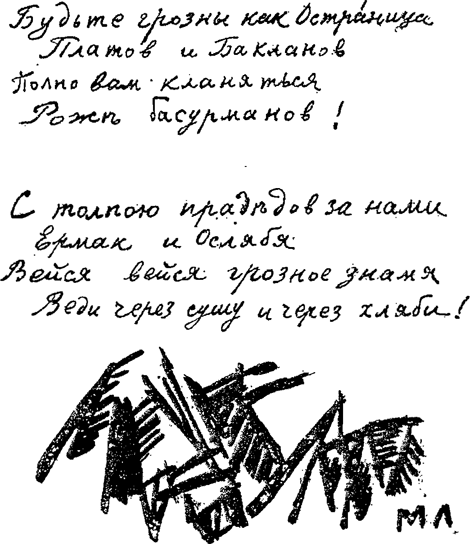 Будьте грозны как Остра́ница
Платов и Бакланов
Полно вам кланяться
Рожѣ басурманов!
С толпою прадѣдов за нами
Ермак и Ослябя
Вейся вейся грозное знамя
Веди через сушу и через хляби!
М Л.